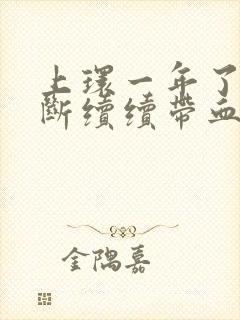 上環一年了
斷續續帶血
金隅嘉